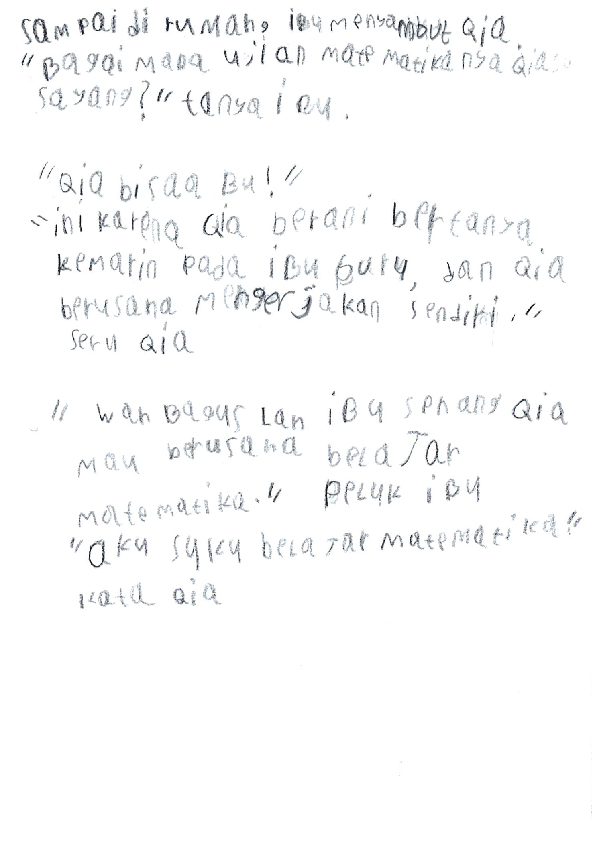 sampai di rumah, ibu menyambut Qia.
"Bagaimana ujian matematikanya Qia
sayang?" tanya ibu.
"Qia bisaa Bu!"
"ini karena Qia berani bertanya
kemarin pada ibu guru, dan Qia
berusaha mengerjakan sendiri."
seru Qia
"wah Bagus Lah iBu senang Qia
mau berusaha beLaJar
matematika." peLuk iBu
"Aku suku beLaJar matematika"
kata Qia